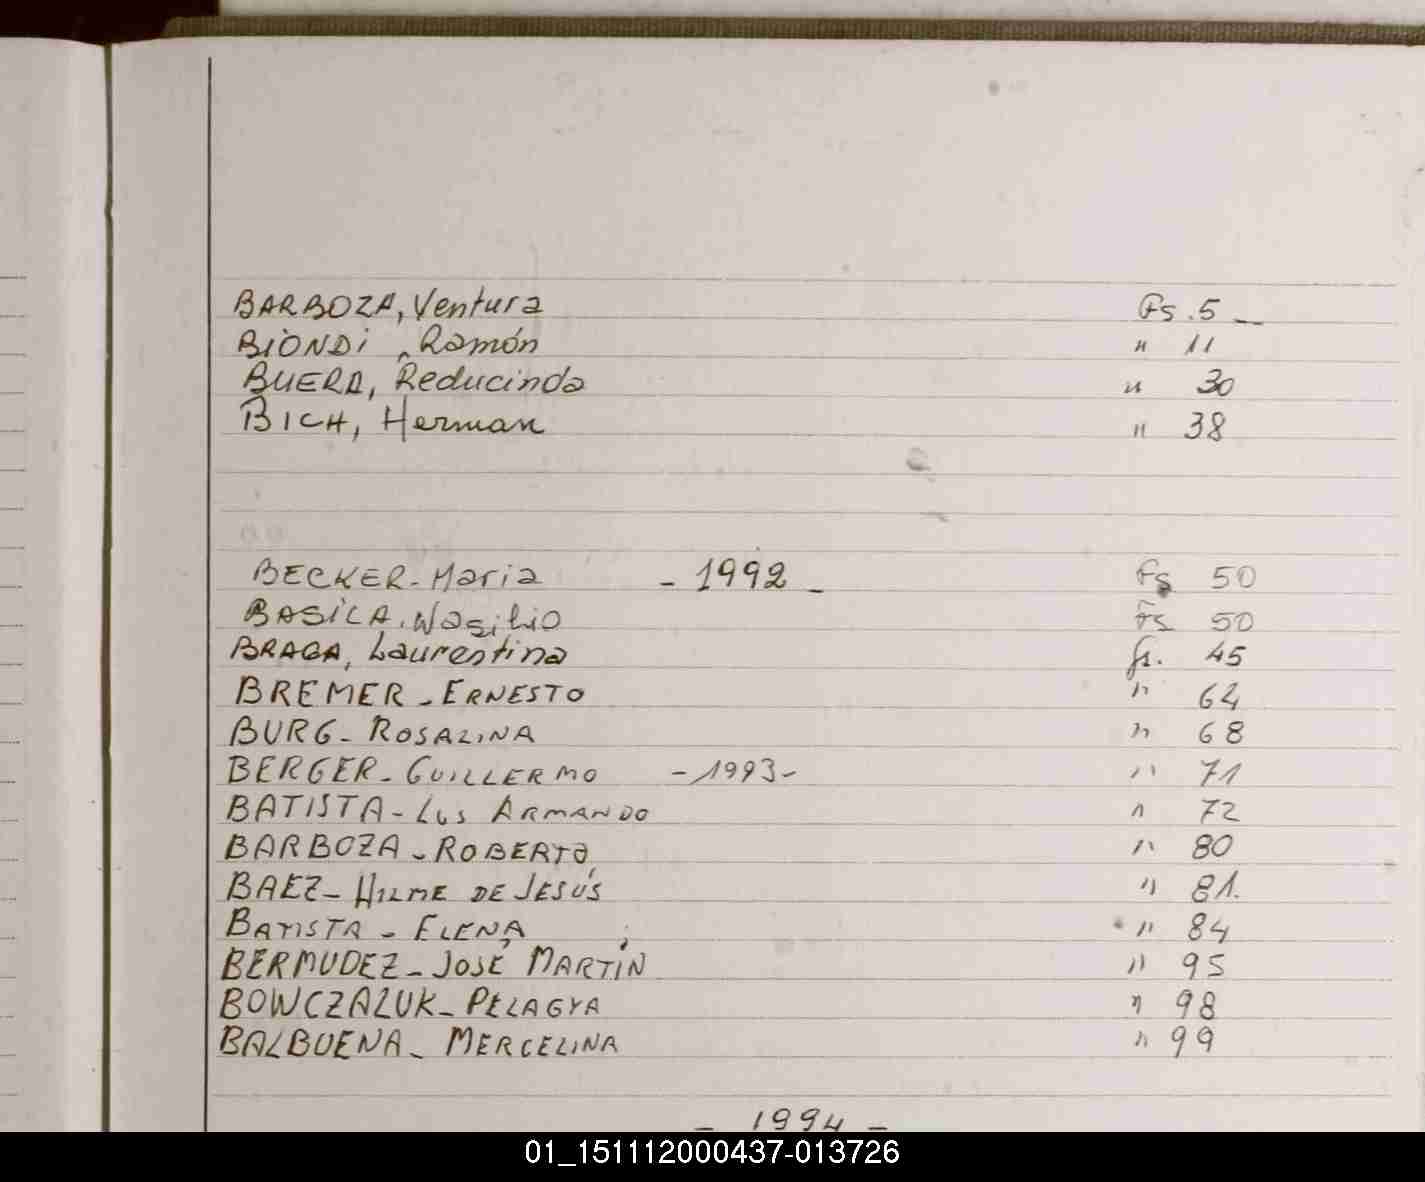 BARBOZA, Ventura Fs. 5 _
BIONDI, Ramón " 11
BUERA, Reducinda " 30
BICH, Herman " 38
BECKER - Maria - 1992 - Fs 50
BASILA, Wasilio Fs 50
BRAGA, Laurentina fs. 45
BREMER - ERNESTO " 64
BURG - ROSALINA " 68
BERGER - GUILLERMO - 1993 - " 71
BATISTA - LUS ARMANDO " 72
BARBOZA - ROBERTO " 80
BAEZ - HILME DE JESÚS " 81.
BATISTA - ELENA " 84
BERMUDEZ - JOSÉ MARTÍN " 95
BOWCZALUK - PELAGYA " 98
BALBUENA - MERCELINA " 99
- 1994 -
01_151112000437-013726